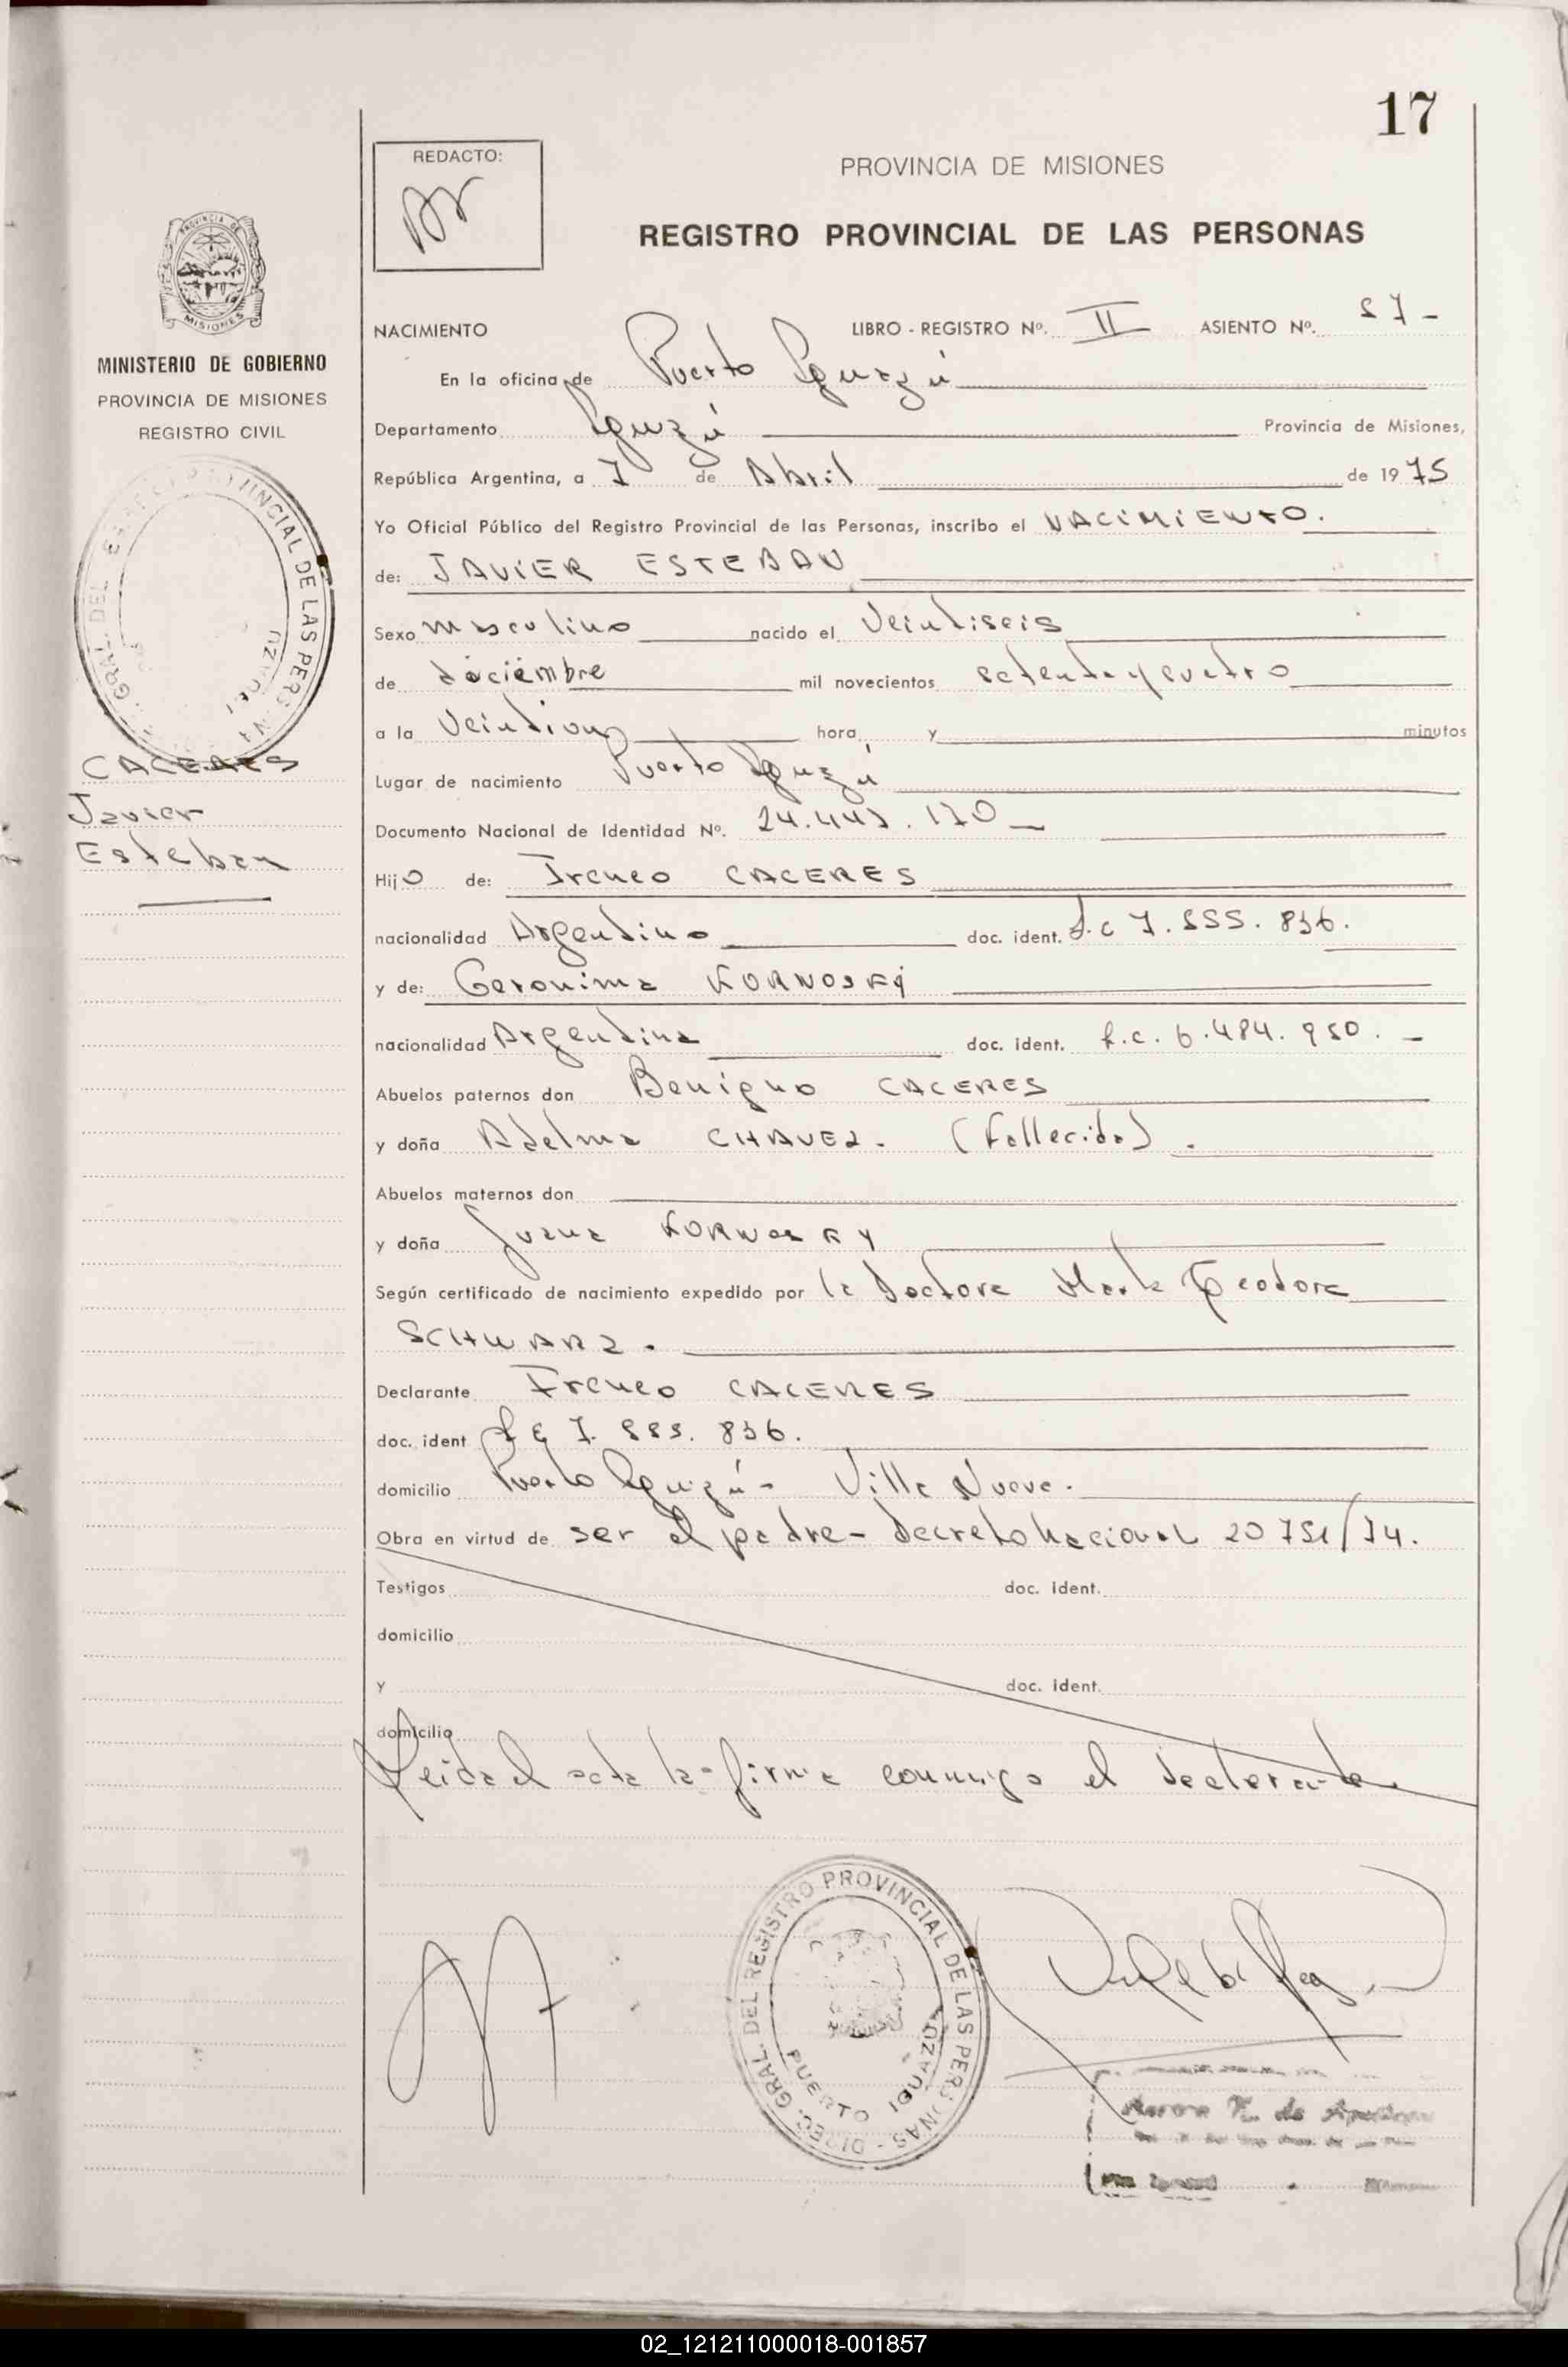 17
REDACTO:
PROVINCIA DE MISIONES
REGISTRO PROVINCIAL DE LAS PERSONAS
PROVINCIA DE
MISIONES
MINISTERIO DE GOBIERNO
PROVINCIA DE MISIONES
REGISTRO CIVIL
CACERES
Javier
Esteban
NACIMIENTO LIBRO - REGISTRO Nº. II ASIENTO Nº. 57 -
En la oficina de Puerto Iguazú
Departamento Iguazú Provincia de Misiones,
República Argentina, a 7 de Abril de 1975
Yo Oficial Público del Registro Provincial de las Personas, inscribo el NACIMIENTO.
de: JAVIER ESTEBAN
Sexo masculino nacido el veintiseis
de diciembre mil novecientos setenta y cuatro
a la veintiona hora y minutos
Lugar de nacimiento Puerto Iguazú
Documento Nacional de Identidad Nº.
Hijo de: Ireneo CACERES
nacionalidad Argentino doc. ident.
y de: Geronima KORNOSKY
nacionalidad Argentina doc. ident.
Abuelos paternos don Benigno CACERES
y doña Adelma CHAVEZ. (Fallecida).
Abuelos maternos don
y doña Juana KORNOSKY
Según certificado de nacimiento expedido por la Doctora Marta Teodora
SCHWARZ.
Declarante Ireneo CACERES
doc. ident
domicilio Puerto Iguazú - Villa Nueva.
Obra en virtud de ser el padre - decreto Nacional 20751/74.
Testigos doc. ident.
domicilio
y doc. ident.
domicilio
Leida el acta la firma conmigo el declarante
DIREC. GRAL. DEL REGISTRO PROVINCIAL DE LAS PERSONAS -
PUERTO IGUAZU
02_121211000018-001857